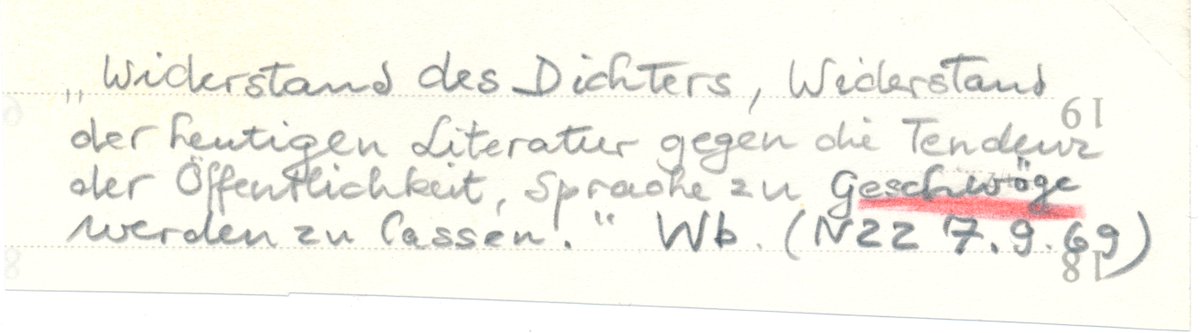 „Widerstand des Dichters, Widerstand
19
der heutigen Literatur gegen die Tendenz
der Öffentlichkeit, Sprache zu Geschwöge
werden zu lassen." Wb. (NZZ 7.9.69)
18